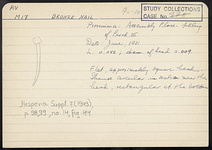 PN
M17
BRONZE NAIL
STUDY COLLECTIONS
CASE No.
Provenance: Assembly Place. Filling
of Period III
Date: June, 1931
L. 0.082; diam. of head 0.009.
Flat, approximately square head.
Shank circular in section near the
head; rectangular at the bottom.
Hesperia Suppl. 7 (1943)
p. 98, 99, no. 14, fig. 44